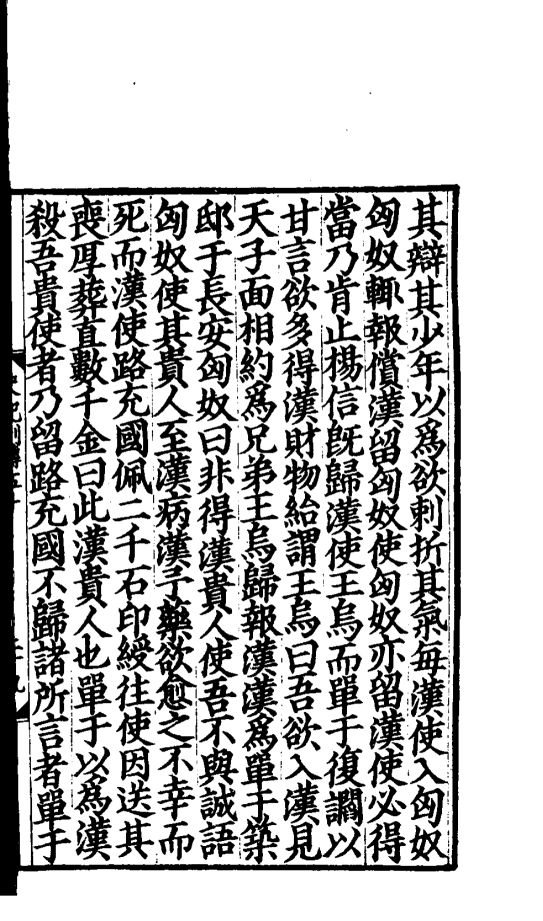 其辯其少年以爲欲刺折其氣每漢使入匈奴
匈奴輒報償漢留匈奴使匈奴亦留漢使必得
當乃肯止楊信旣歸漢使王烏而單于復讇以
甘言欲多得漢財物紿謂王烏曰吾欲入漢見
天子面相約爲兄弟王烏歸報漢漢爲單于築
邸于長安匈奴曰非得漢貴人使吾不與誠語
匈奴使其貴人至漢病漢予藥欲愈之不幸而
死而漢使路充國佩二千石印綬往使因送其
喪厚葬直數千金曰此漢貴人也單于以爲漢
殺吾貴使者乃留路充國不歸諸所言者單于